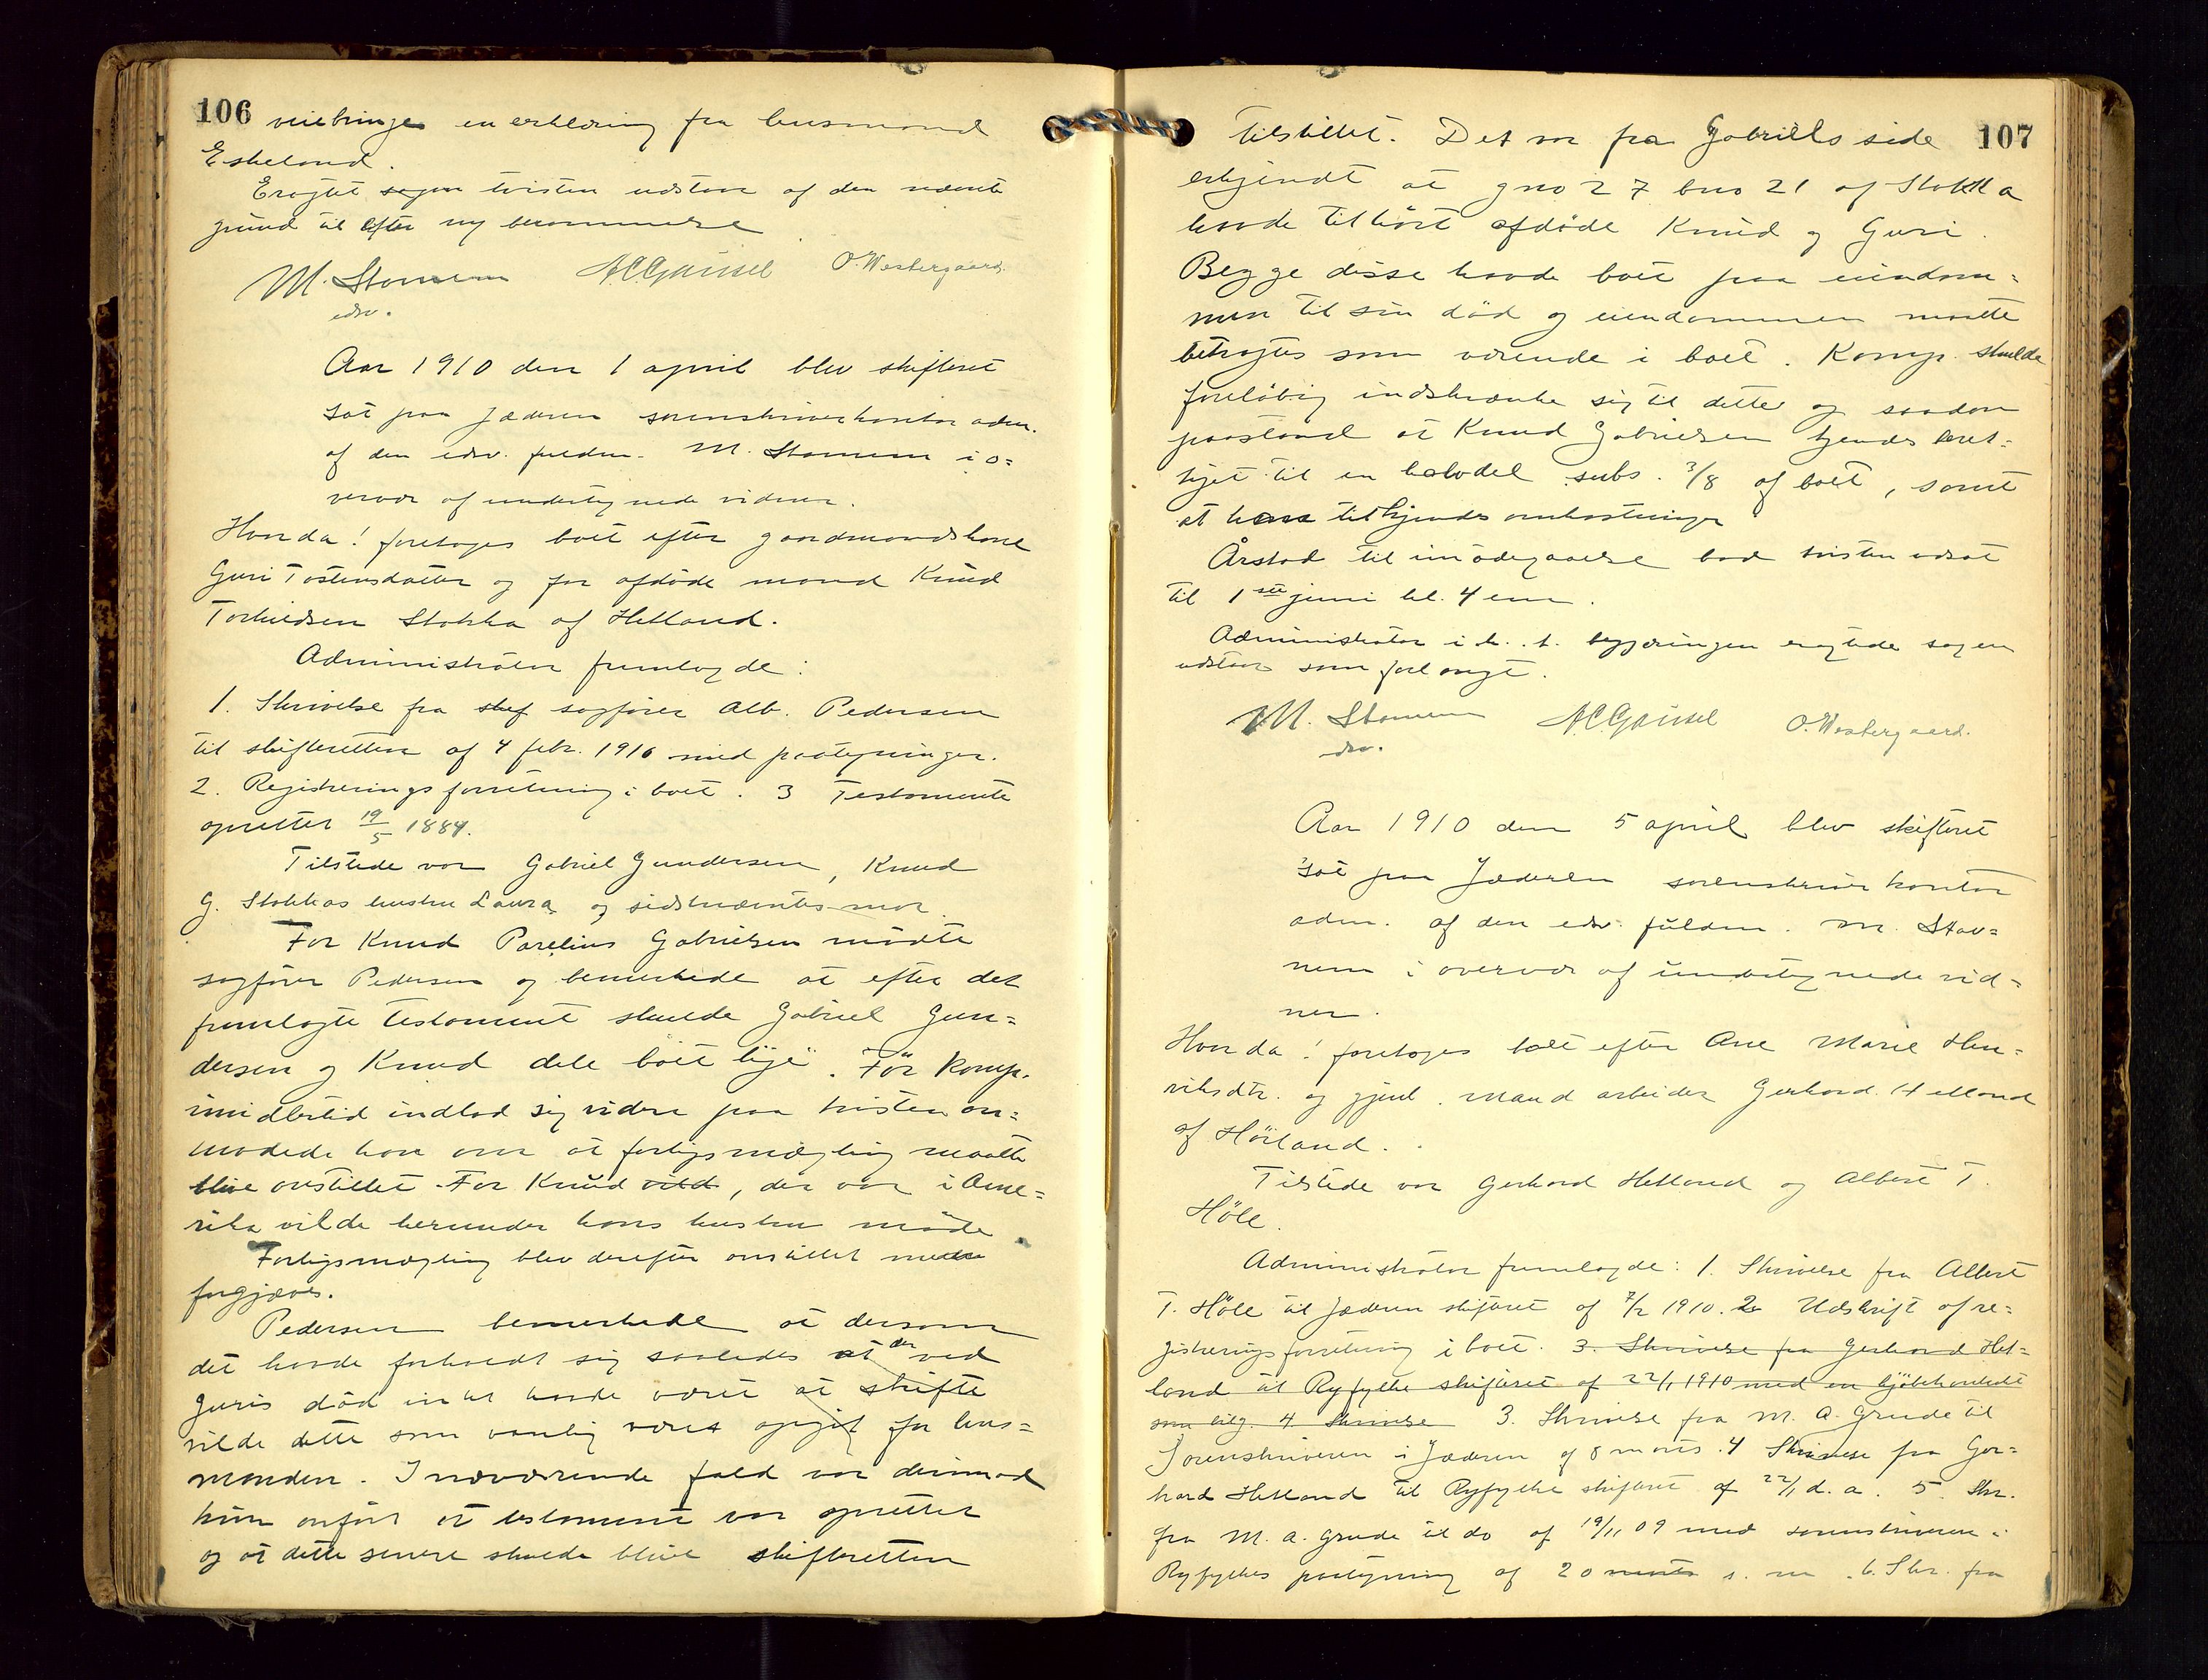 106
veiebringe en erklæring fra husmand
Eskeland.
Eragtet sagen tvisten udstaar af den nævnte
grund til efter ny berammelse
M. Stavnem A.C. Gausel O. Westergaard.
edsv.
Aar 1910 den 1 april blev skifteret
sat paa Jæderen sorenskriverkontor adm.
af den edsv. fuldm. M. Stavnem i o=
vervær af undertegnede vidner.
Hvorda! foretoges boet efter gaardmandskone
Guri Tostensdatter og før afdøde mand Knud
Torkildsen Stokka af Hetland.
Administrator fremlagde:
1. Skrivelse fra skif sagfører Alb. Pedersen
til skifteretten af 4 febr. 1910 med paategninger.
2. Registreringsforretning i boet. 3 Testamente
oprettet 19/5 1884.
Tilstede var Gabriel Gundersen, Knud
G. Stokkas hustru Laura og sidstnævntes mor.
For Knud Parelius Gabrielsen mødte
sagfører Pedersen og bemerkede at efter det
fremlagte testament skulde Gabriel Gun=
dersen og Knud dele boet lige. Før komp.
imidlertid indlod sig videre paa tvisten an=
modede han om at forligsmægling maatte
blive anstillet. For Knud vild, der var i Ame=
rika vilde herunder hans hustru møde.
Forligsmægling blev derefter anstillet men
forgjæves.
Pedersen bemerkede at dersom
det havde forholdt sig saaledes at der ved
Guris død intet havde været at skifte
vilde dette som vanlig været opgit fra lens=
manden. I nærværende fald var derimod
kun anført at testament var oprettet
og at dette senere skulde blive skifteretten
107
tilstillet. Det var fra Gabriels side
erkjendt at gno 27 bno 21 af Stokka
havde tilhørt afdøde Knud og Guri.
Begge disse havde boet paa eiendom=
men til sin død og eiendommen maatte
betragtes som værende i boet. Komp. skulde
foreløbig indskrænke sig til dette og saadan
paastand at Knud Gabrielsen kjendes beret=
tiget til en halvdel subs. 3/8 af boet, samt
at han tilkjendes omkostninger
Årstad til imødegaaelse bad tvisten udsat
til 1ste juni kl. 4 em.
Administrator i h. t. begjæringen eragtede sagen
udstaar som forlangt.
M. Stavnem A.C. Gausel O. Westergaard.
edsv.
Aar 1910 den 5 april blev skifteret
sat paa Jæderen sorenskriverkontor
adm. af den edsv. fuldm. M. Stav=
nem i overvær af undertegnede vid=
ner.
Hvorda! foretoges boet efter Ane Marie Hen=
riksdtr. og gjenl. mand arbeider Gerhard Hetland
af Høiland.
Tilstede var Gerhard Hetland og Albert T.
Høle.
Administrator fremlagde: 1. Skrivelse fra Albert
T. Høle til Jæderen skifteret af 7/2 1910. 2. Udskrift af re=
gistreringsforretning i boet. 3. Skrivelse fra Gerhard Het=
land til Ryfylke skifteret af 22/1 1910 med en kjøbekontrakt
som bilag. 4. Skrivelse 3. Skrivelse fra M. A. Grude til
Sorenskriveren i Jæderen af 8 marts. 4 Skrivelse fra Ger=
hard Hetland til Ryfylke skifteret af 22/1 d. a. 5. Skr.
fra M. A. Grude til do af 19/11 09 med sorenskriveren i
Ryfylkes paategning af 20 marts s. m. 6. Skr. fra